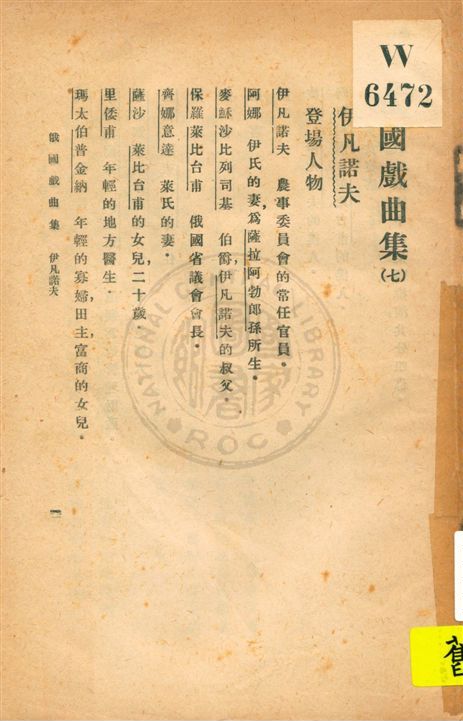 W
6472
國戲曲集(七)
伊凡諾夫
登場人物
伊凡諾夫　農事委員會的常任官員。
阿娜　伊氏的妻，爲薩拉阿勃郎孫所生。
麥穌沙比列司基　伯爵，伊凡諾夫的叔父。
保羅萊比台甫　俄國省議會會長。
齊娜意達　萊氏的妻。
薩沙　萊比台甫的女兒，二十歲。
里倭甫　年輕的地方醫生。
瑪太伯普金納　年輕的寡婦，田主，富商的女兒。
俄國戲曲集　伊凡諾夫
一
NATIONAL C LIBRARY
ROC
舊